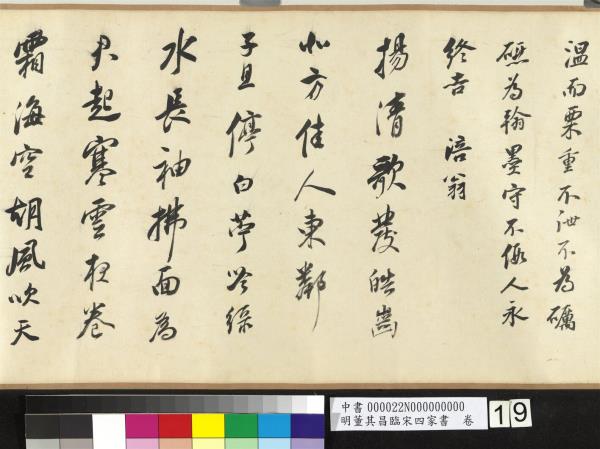 溫而栗重不泄不為礪
為翰墨守不假人永
終吉 涪翁
揚清歌發皓齒
北方佳人東鄰
子且停白苧吟綠
水長袖拂面為
君起寒雲夜卷
霜海空胡風吹天
中書 000022N000000000
明董其昌臨宋四家書 卷
19